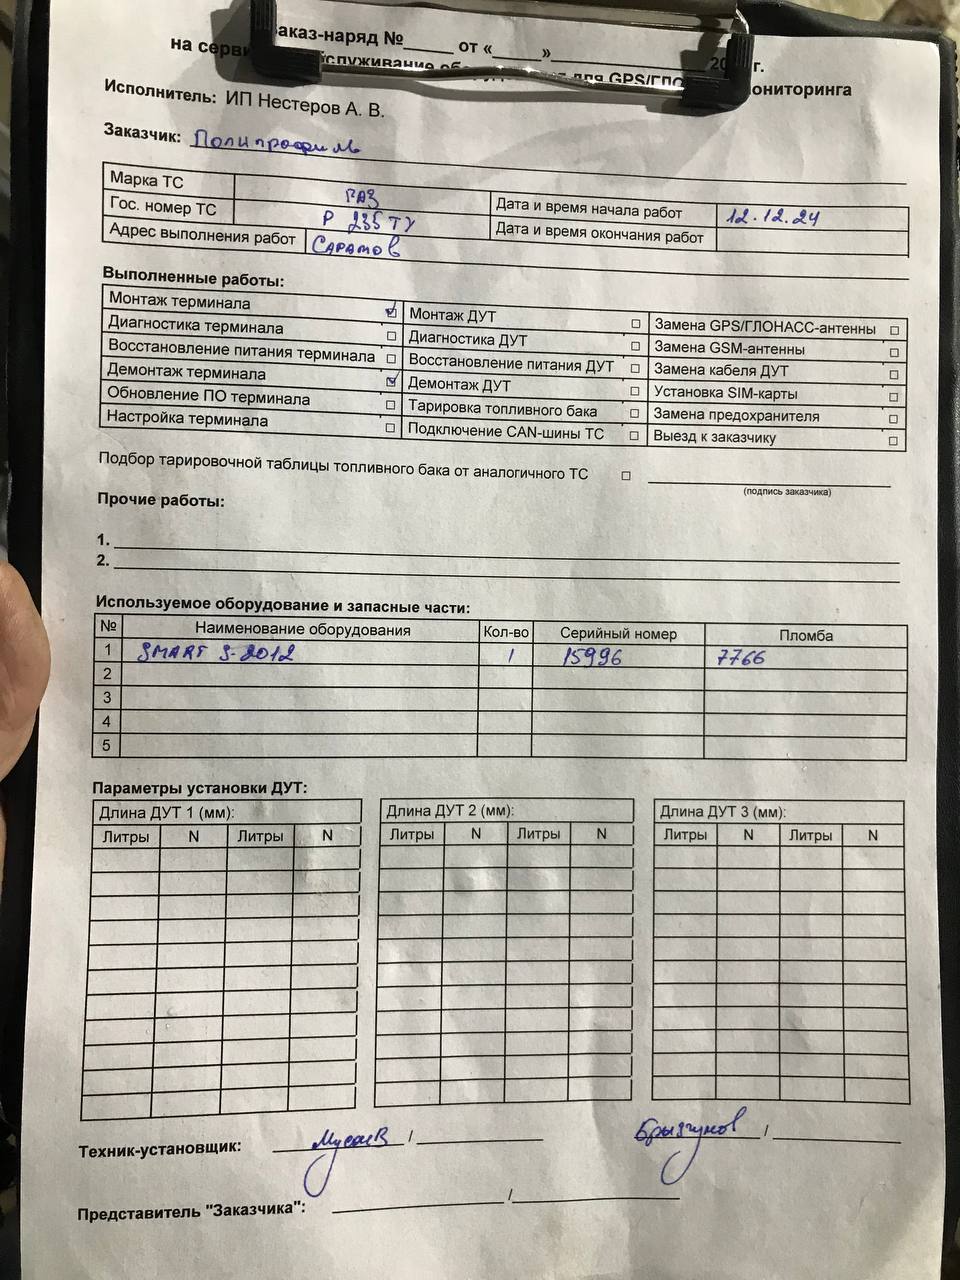 аказ-наряд №_____ от «_____»____________________ 20 г.
на серви служивание об для GPS/ГЛО ониторинга
Исполнитель: ИП Нестеров А. В.
Заказчик: Полипрофиль
Марка ТС ГАЗ Дата и время начала работ 12.12.24
Гос. номер ТС Р 235 ТУ Дата и время окончания работ
Адрес выполнения работ Саратов
Выполненные работы:
Монтаж терминала ☑ Монтаж ДУТ □ Замена GPS/ГЛОНАСС-антенны □
Диагностика терминала □ Диагностика ДУТ □ Замена GSM-антенны □
Восстановление питания терминала □ Восстановление питания ДУТ □ Замена кабеля ДУТ □
Демонтаж терминала ☑ Демонтаж ДУТ □ Установка SIM-карты □
Обновление ПО терминала □ Тарировка топливного бака □ Замена предохранителя □
Настройка терминала □ Подключение CAN-шины ТС □ Выезд к заказчику □
Подбор тарировочной таблицы топливного бака от аналогичного ТС □
(подпись заказчика)
Прочие работы:
1.
2.
Используемое оборудование и запасные части:
№ Наименование оборудования Кол-во Серийный номер Пломба
1 SMART S-2012 1 15996 7766
2
3
4
5
Параметры установки ДУТ:
Длина ДУТ 1 (мм): Длина ДУТ 2 (мм): Длина ДУТ 3 (мм):
Литры N Литры N Литры N Литры N Литры N Литры N
Техник-установщик: Мусаев / Брызгунов /
Представитель "Заказчика": /